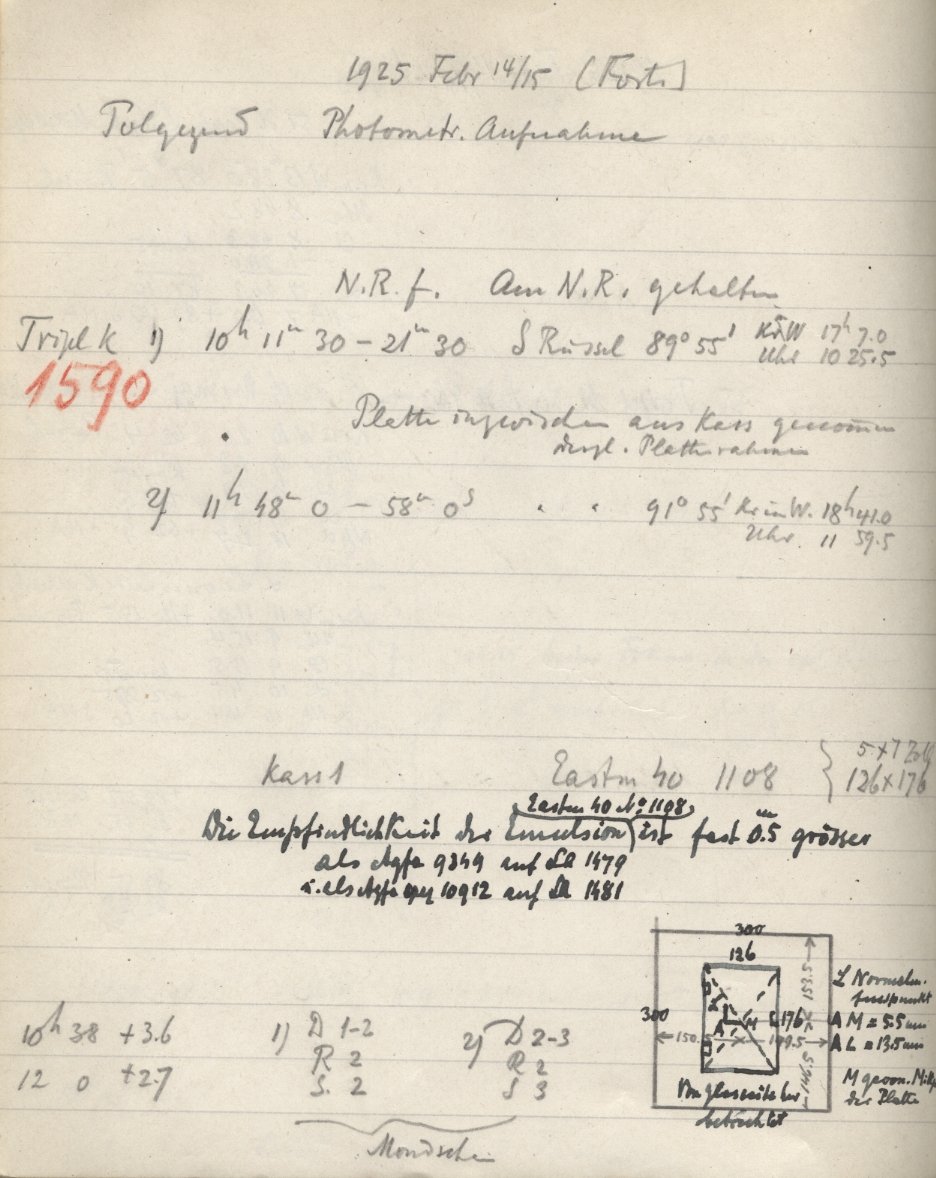 1925 Febr 14/15 (Forts)
Folgegend Photometr. Aufnahme
N.R. f. Am N.R. gehalten
Tripl K 1) 10h 11m 30 – 21m 30 S Russel 89° 55' Kr W 17h 7.0
Uhr 10 25.5
1590
Platte inzwischen aus Kass genommen
desgl. Plattenrahmen
2) 11h 48m 0 – 58m 0s " " 91° 55' Kr in W. 18h 41.0
Uhr 11 59.5
Kass 1 Eastm 40 1108 5 x 7 Zoll
126 x 176
Eastm 40 No 1108
Die Empfindlichkeit der Emulsion ist fast 0.5m grösser
als Agfa 9349 auf 1479
u. als Agfa 10912 auf 1481
300
126
153.5
300
L 176
A M
150.5 149.5
146.5
Von Glasseite her
betrachtet
L Normalen-
fusspunkt
A M = 5.5 mm
A L = 13.5 mm
M geom. Mitte
der Platte
10h 38 +3.6 1) D 1-2 2) D 2-3
R 2 R 2
12 0 +2.7 S. 2 S 3
Mondschein